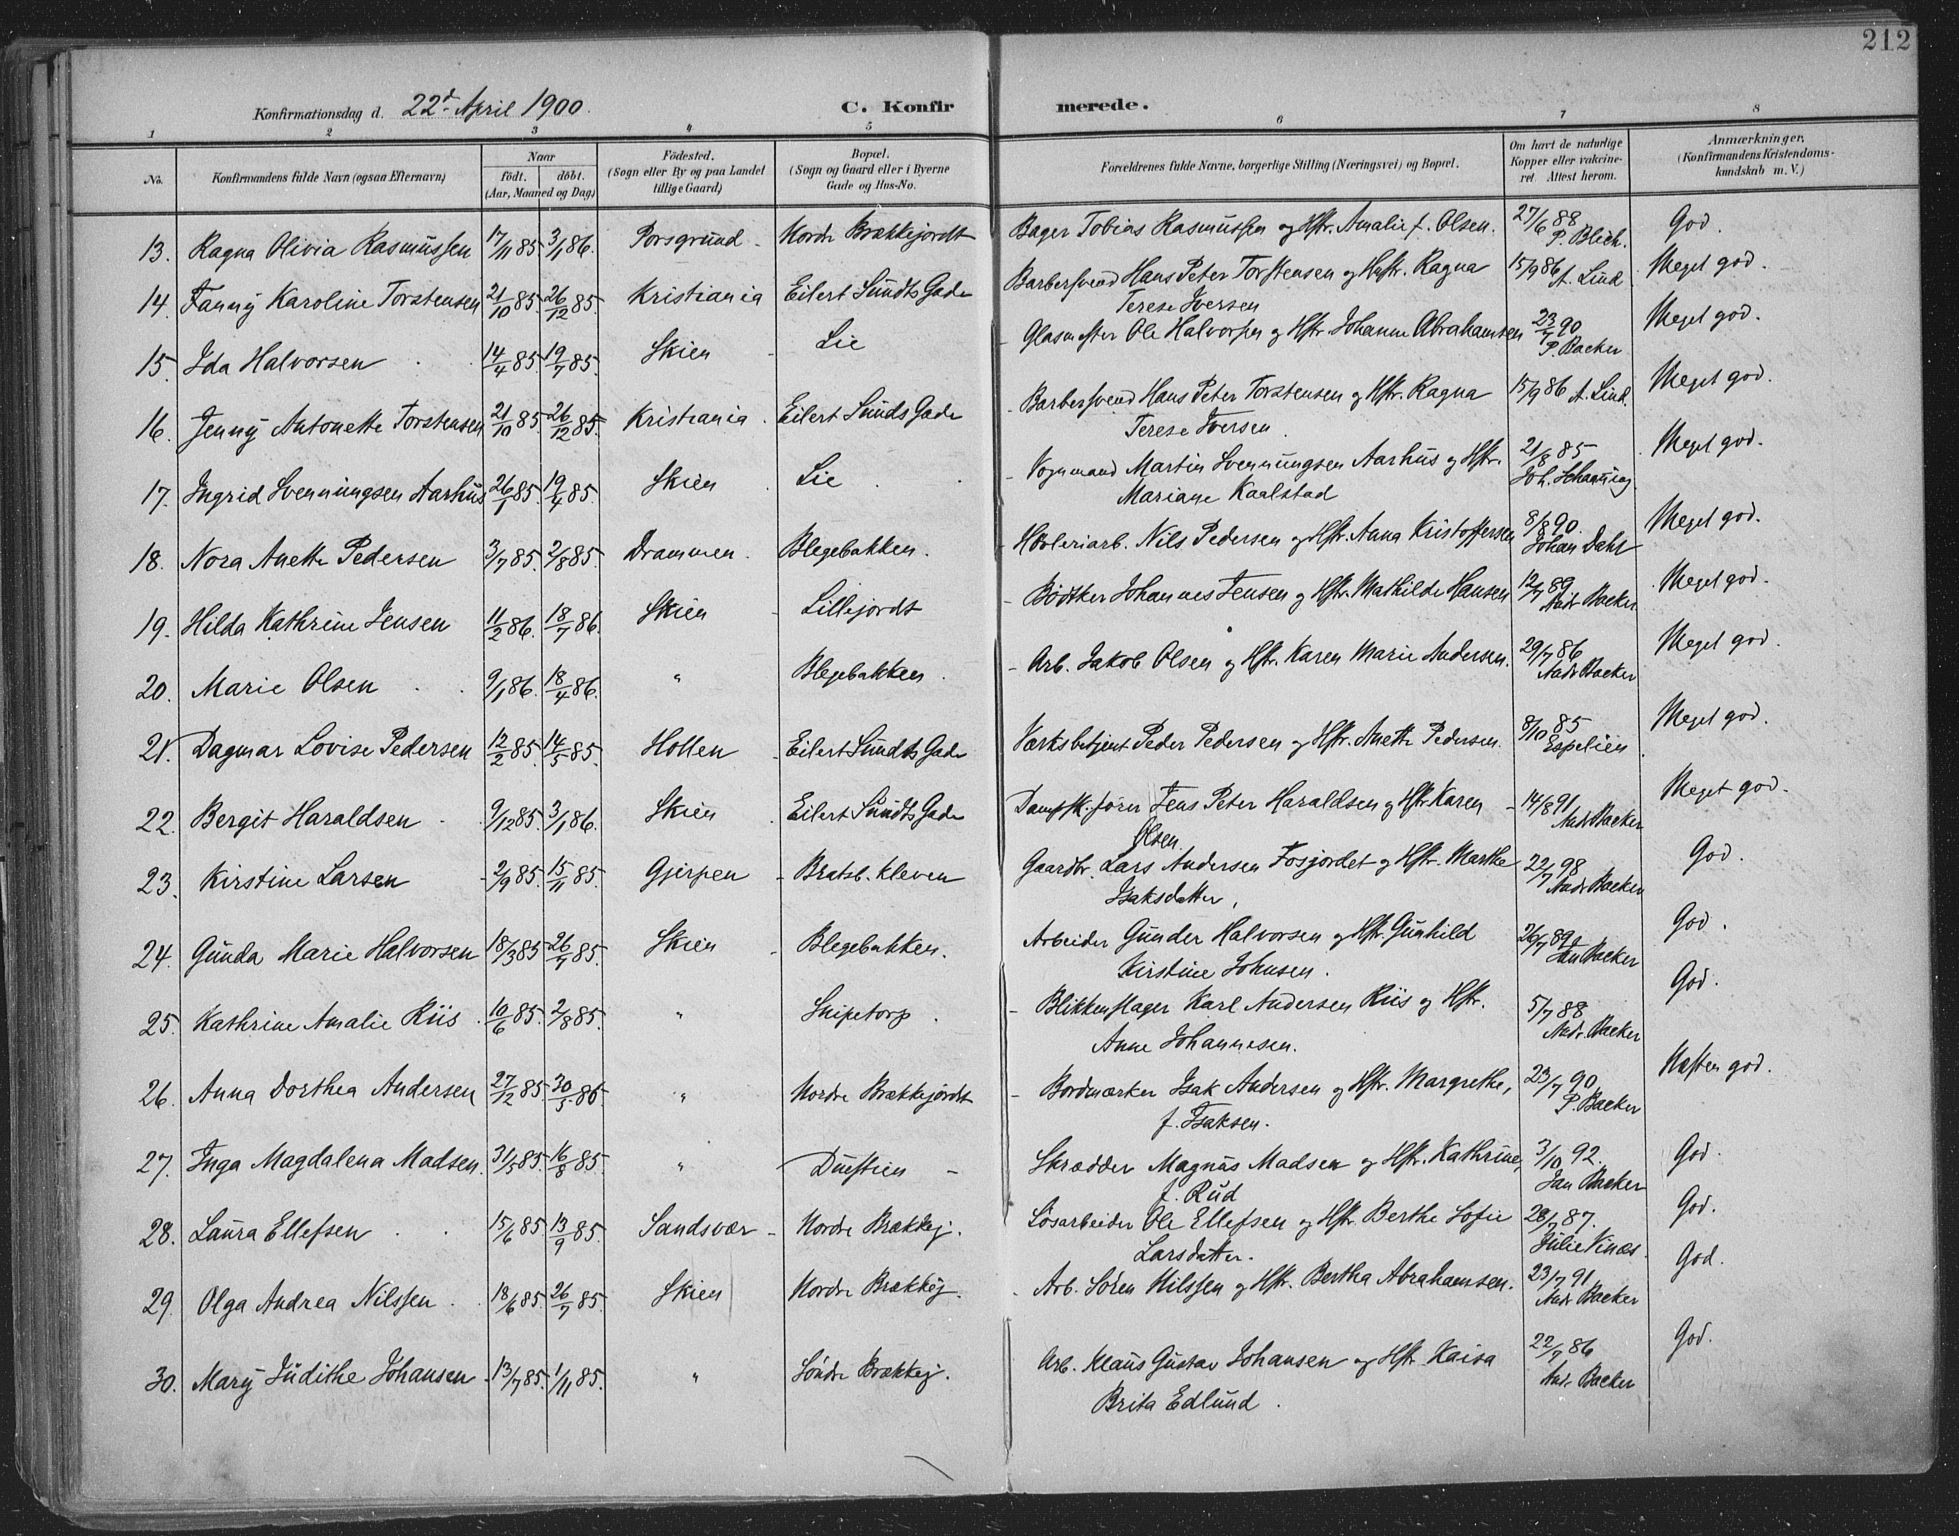 212
Konfirmationsdag d. 22d April 1900. C. Konfirmerede.
1 2 3 4 5 6 7 8
No. Konfirmandens fulde Navn (ogsaa Efternavn) Naar født. døbt. (Aar, Maaned og Dag) Fødested. (Sogn eller By og paa Landet tillige Gaard) Bopæl. (Sogn og Gaard eller i Byerne Gade og Hus-No. Forældrenes fulde Navne, borgerlige Stilling (Næringsvei) og Bopæl. Om havt de naturlige Kopper eller vakcineret Attest herom. Anmærkninger. (Konfirmandens Kristendomskundskab m. V.)
13. Ragna Olivia Rasmussen 17/11 85. 3/1 86. Porsgrund - Nordre Brækkejordt Bager Tobias Rasmussen og Hstr. Amalie f. Olsen. 27/6 88 P. Blich. God.
14. Fanny Karoline Torstensen 21/10 85. 26/12 85. Kristiania Eilert Sundts Gade Barbersvend Hans Peter Torstensen og Hustr. Ragna 15/9 86 A. Lind Meget god.
Terese Iversen
15. Ida Halvorsen 14/4 85. 19/7 85. Skien - Lie - Glasmester Ole Halvorsen og Hstr. Johanne Abrahamsen 23/7 90 P. Backer Meget god.
16. Jenny Antonette Torstensen 21/10 85. 26/12 85. Kristiania. Eilert Sunds Gade - Barbersvend Hans Peter Torstensen og Hstr. Ragna 15/9 86 A. Lind. Meget god.
Terese Iversen.
17. Ingrid Svenningsen Aarhus 26/1 85. 19/4 85. Skien. Lie. - Vognmand Martin Svennungsen Aarhus og Hstr. 21/8 85 Joh. Schanning Meget god.
Mariane Kaalstad
18. Nora Anette Pedersen 3/7 85. 2/8 85. Drammen. Blegebakken. - Høvleriarb. Nils Pedersen og Hstr. Anna Kristoffersen 8/8 90. Johan Dahl Meget god.
19. Hilda Kathrine Jensen 11/2 86. 18/7 86. Skien - Lillejordt - Bødtker Johannes Jensen og Hstr. Mathilde Hansen 12/7 89 Andr. Backer Meget god.
20. Marie Olsen 9/1 86. 18/4 86. " Blegebakken. - Arb. Jakob Olsen og Hstr. Karen Marie Andersen. 29/7 86 Andr Backer Meget god.
21. Dagmar Lovise Pedersen 12/2 85. 14/5 85. Hollen - Eilert Sundts Gade Værksbetjent Peder Pedersen og Hstr. Anette Pedersen. 8/10 85 Espelien Meget god.
22. Bergit Haraldsen 9/12 85. 3/1 86. Skien. Eilert Sundts Gade Dampsk.fører Jens Peter Haraldsen og Hstr Karen - 14/8 91 Andr Backer Meget god.
Olsen.
23. Kirstine Larsen - 2/9 85. 15/11 85. Gjerpen - Bratsb. kleven Gaardbr. Lars Andersen Fosjordet og Hstr. Marthe 22/7 98 Andr Backer God.
Isaksdatter,
24. Gunda Marie Halvorsen 18/3 85 26/7 85. Skien - Blegebakken. Arbeider Gunder Halvorsen og Hstr. Gunhild 26/7 89 Jan Backer God.
Kirstine Johnsen.
25. Kathrine Amalie Riis 10/6 85. 2/8 85. " Snipetorp. - Blikkenslager Karl Andersen Riis og Hstr. 5/7 88 Andr. Backer God.
Anne Johannesen.
26. Anna Dorthea Andersen 27/2 85. 30/5 86 " Nordre Brækkejordt - Bordmærker Isak Andersen og Hstr. Margrethe, 23/7 90. P. Backer Næsten god.
f. Isaksen.
27. Inga Magdalena Madsen. 31/5 85. 16/8 85. " Duestien - Skrædder Magnus Madsen og Hstr. Kathrine, 3/10 92. Jan Backer God.
f. Rud
28. Laura Ellefsen 15/6 85. 13/9 85. Sandsvær - Nordre Brækkej. Løsarbeider Ole Ellefsen og Hstr. Berthe Sofie 28/7 87. Julie Vinæs. God.
Larsdatter.
29. Olga Andrea Nilssen. 18/6 85. 26/7 85. Skien Nordre Brækkej. - Arb. Søren Nilssen og Hstr. Bertha Abrahamsen. 23/7 91 Andr Backer God.
30. Mary Judithe Johansen - 13/7 85. 1/11 85. " Søndre Brækkej. Arb. Klaus Gustav Johansen og Hstr. Kaisa 22/9 86 Andr Backer God.
Brita Edlund.